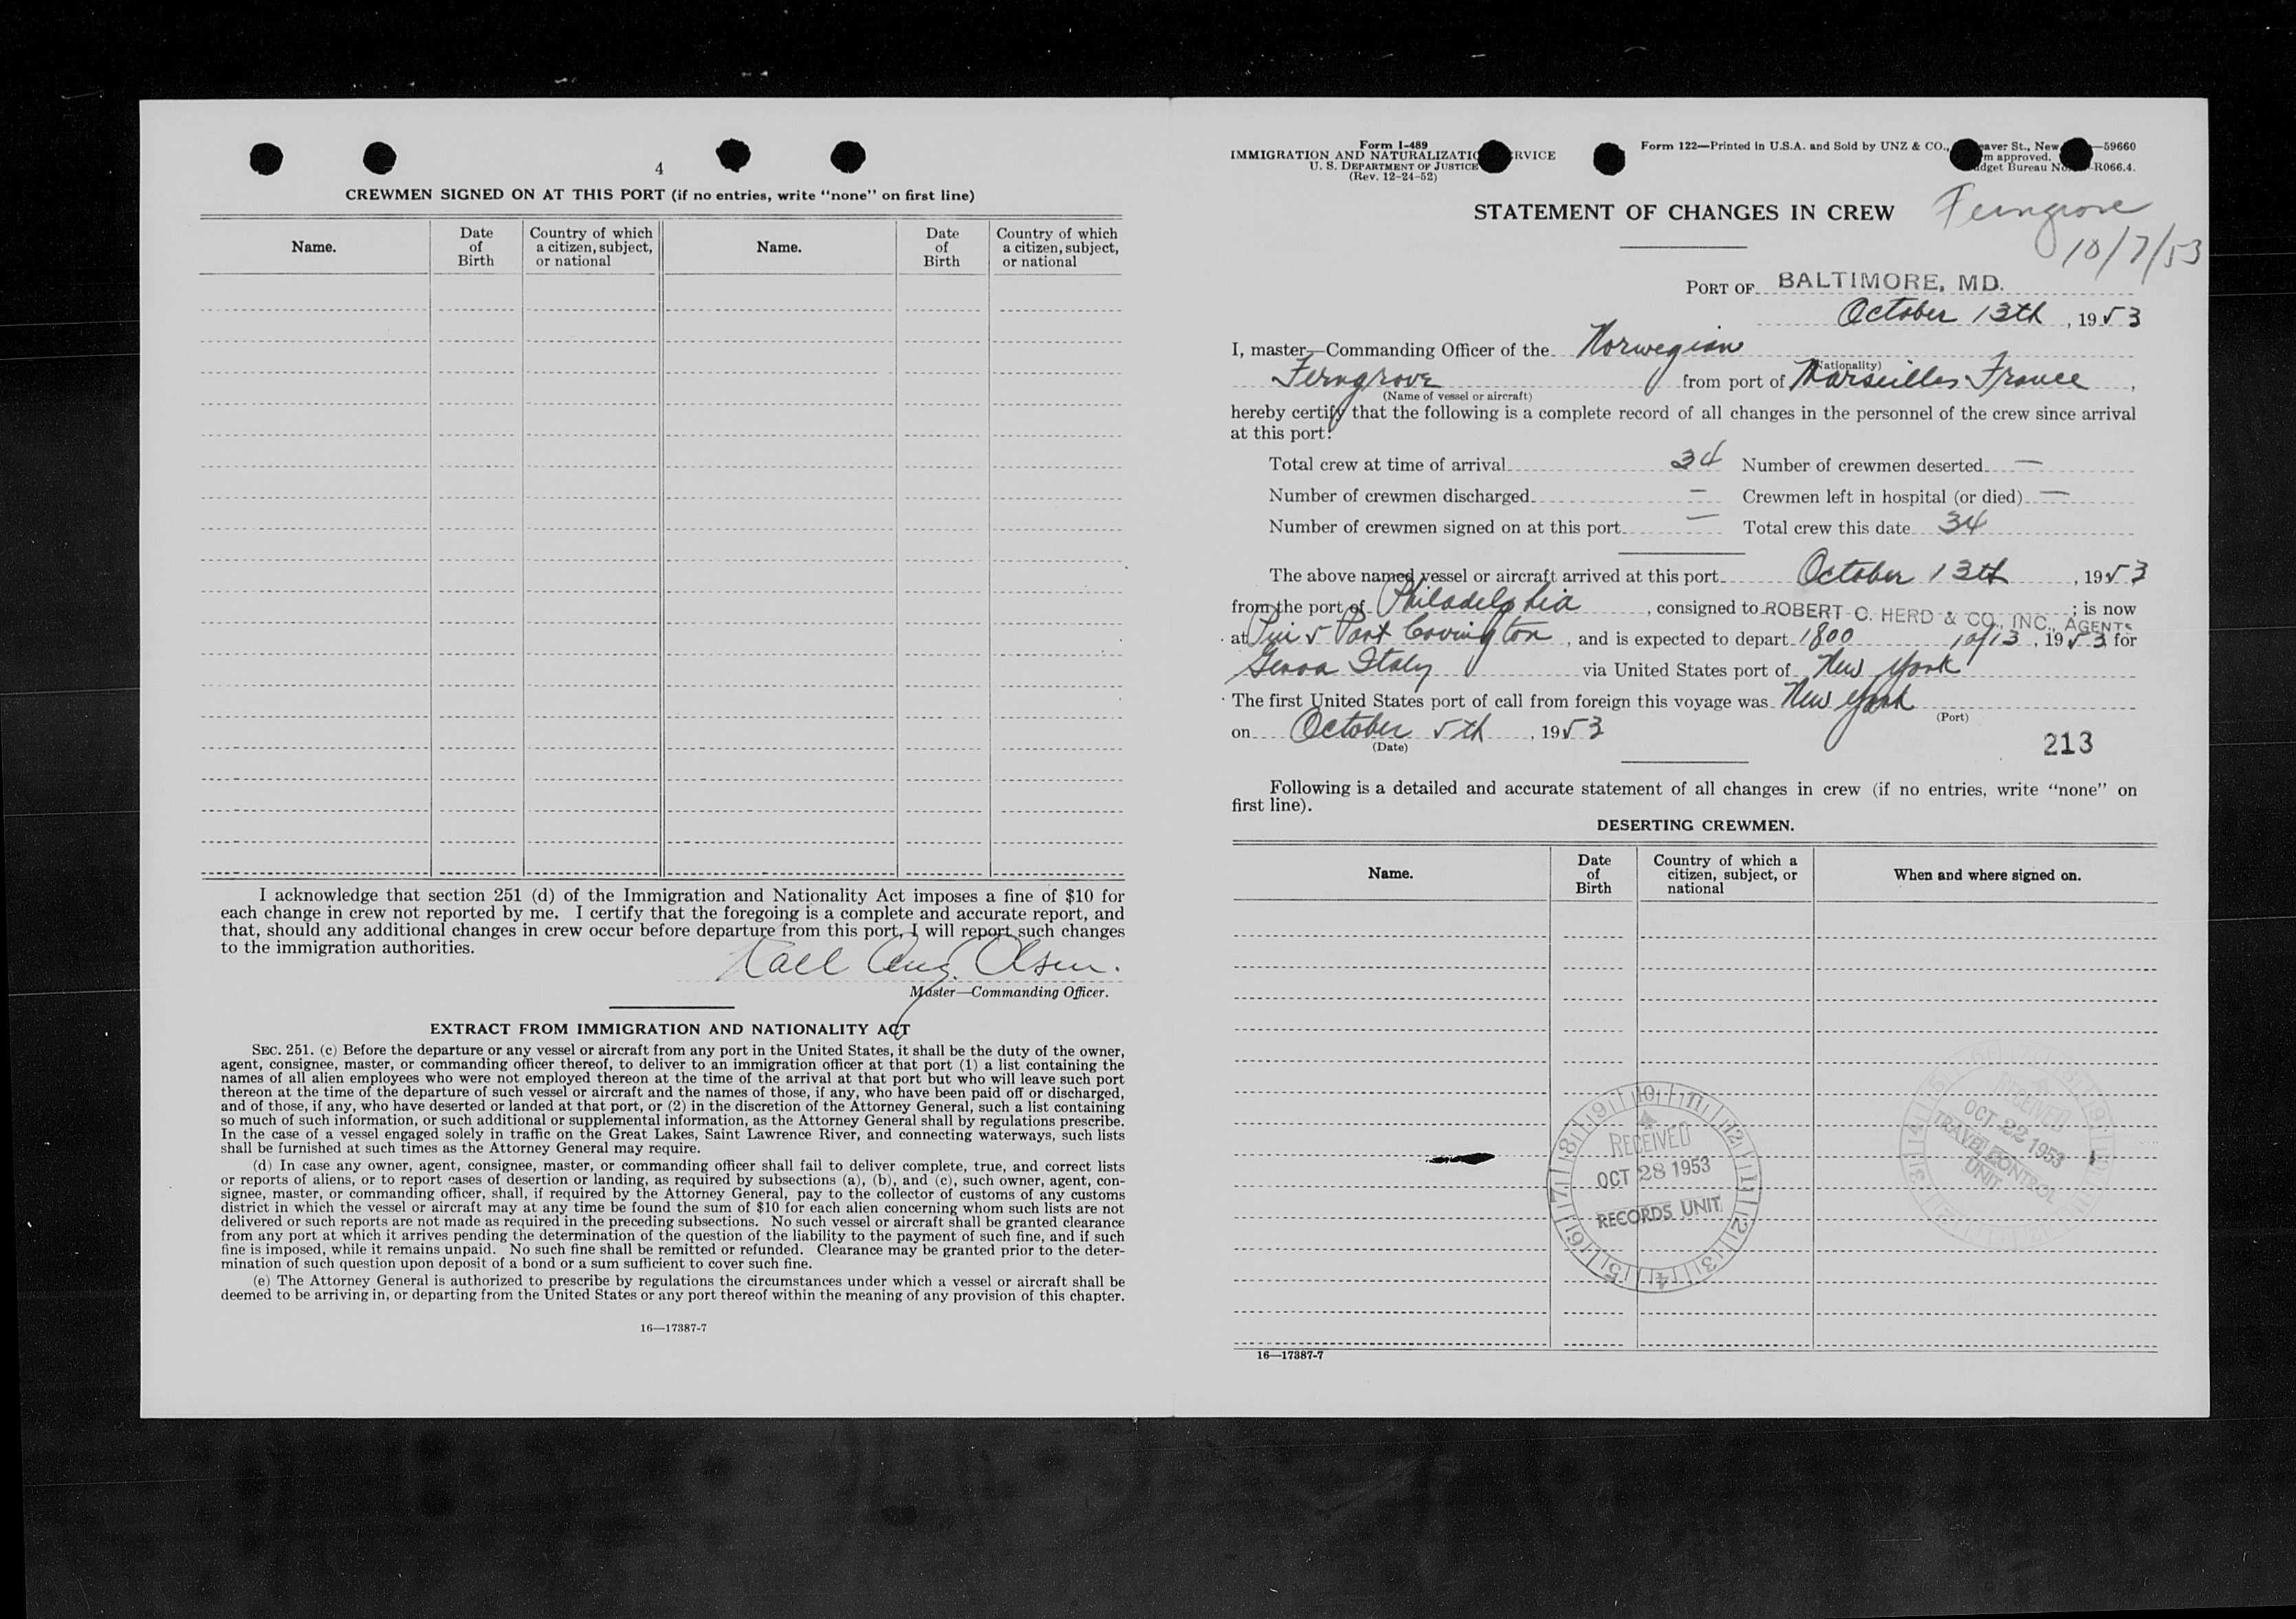 4
CREWMEN SIGNED ON AT THIS PORT (if no entries, write "none" on first line)
Name.
Date of Birth
Country of which a citizen, subject, or national
Name.
Date of Birth
Country of which a citizen, subject, or national
I acknowledge that section 251 (d) of the Immigration and Nationality Act imposes a fine of $10 for
each change in crew not reported by me. I certify that the foregoing is a complete and accurate report, and
that, should any additional changes in crew occur before departure from this port, I will report such changes
to the immigration authorities.
Karl Aug. Olsen.
Master—Commanding Officer.
EXTRACT FROM IMMIGRATION AND NATIONALITY ACT
SEC. 251. (c) Before the departure or any vessel or aircraft from any port in the United States, it shall be the duty of the owner,
agent, consignee, master, or commanding officer thereof, to deliver to an immigration officer at that port (1) a list containing the
names of all alien employees who were not employed thereon at the time of the arrival at that port but who will leave such port
thereon at the time of the departure of such vessel or aircraft and the names of those, if any, who have been paid off or discharged,
and of those, if any, who have deserted or landed at that port, or (2) in the discretion of the Attorney General, such a list containing
so much of such information, or such additional or supplemental information, as the Attorney General shall by regulations prescribe.
In the case of a vessel engaged solely in traffic on the Great Lakes, Saint Lawrence River, and connecting waterways, such lists
shall be furnished at such times as the Attorney General may require.
(d) In case any owner, agent, consignee, master, or commanding officer shall fail to deliver complete, true, and correct lists
or reports of aliens, or to report cases of desertion or landing, as required by subsections (a), (b), and (c), such owner, agent, con-
signee, master, or commanding officer, shall, if required by the Attorney General, pay to the collector of customs of any customs
district in which the vessel or aircraft may at any time be found the sum of $10 for each alien concerning whom such lists are not
delivered or such reports are not made as required in the preceding subsections. No such vessel or aircraft shall be granted clearance
from any port at which it arrives pending the determination of the question of the liability to the payment of such fine, and if such
fine is imposed, while it remains unpaid. No such fine shall be remitted or refunded. Clearance may be granted prior to the deter-
mination of such question upon deposit of a bond or a sum sufficient to cover such fine.
(e) The Attorney General is authorized to prescribe by regulations the circumstances under which a vessel or aircraft shall be
deemed to be arriving in, or departing from the United States or any port thereof within the meaning of any provision of this chapter.
16—17387-7
Form I-489
IMMIGRATION AND NATURALIZATIO RVICE
U. S. DEPARTMENT OF JUSTICE
(Rev. 12-24-52)
Form 122—Printed in U.S.A. and Sold by UNZ & CO., eaver St., New —59660
m approved.
udget Bureau No. -R066.4.
STATEMENT OF CHANGES IN CREW
Ferngrove
10/7/53
PORT OF BALTIMORE, MD.
October 13th, 1953
I, master—Commanding Officer of the Norwegian
(Nationality)
Ferngrove from port of Marseilles France,
(Name of vessel or aircraft)
hereby certify that the following is a complete record of all changes in the personnel of the crew since arrival
at this port:
Total crew at time of arrival 34 Number of crewmen deserted —
Number of crewmen discharged — Crewmen left in hospital (or died) —
Number of crewmen signed on at this port — Total crew this date 34
The above named vessel or aircraft arrived at this port October 13th, 1953
from the port of Philadelphia, consigned to ROBERT C. HERD & CO., INC., AGENTS; is now
at Pier 5 Port Covington, and is expected to depart 1800 10/13, 1953 for
Genoa Italy via United States port of New York
The first United States port of call from foreign this voyage was New York
(Port)
on October 5th, 1953
(Date)
213
Following is a detailed and accurate statement of all changes in crew (if no entries, write "none" on
first line).
DESERTING CREWMEN.
Name.
Date of Birth
Country of which a citizen, subject, or national
When and where signed on.
RECEIVED
OCT 28 1953
RECORDS UNIT
RECEIVED
OCT 22 1953
TRAVEL CONTROL
UNIT
16—17387-7